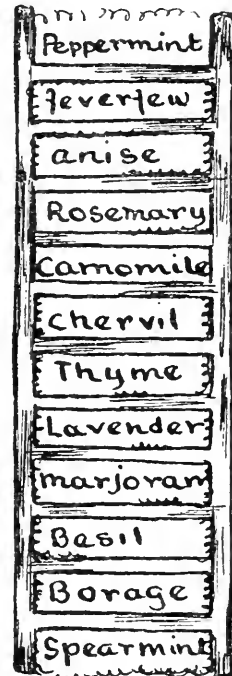 Peppermint
Feverfew
anise
Rosemary
Camomile
Chervil
Thyme
Lavender
marjoram
Basil
Borage
Spearmint